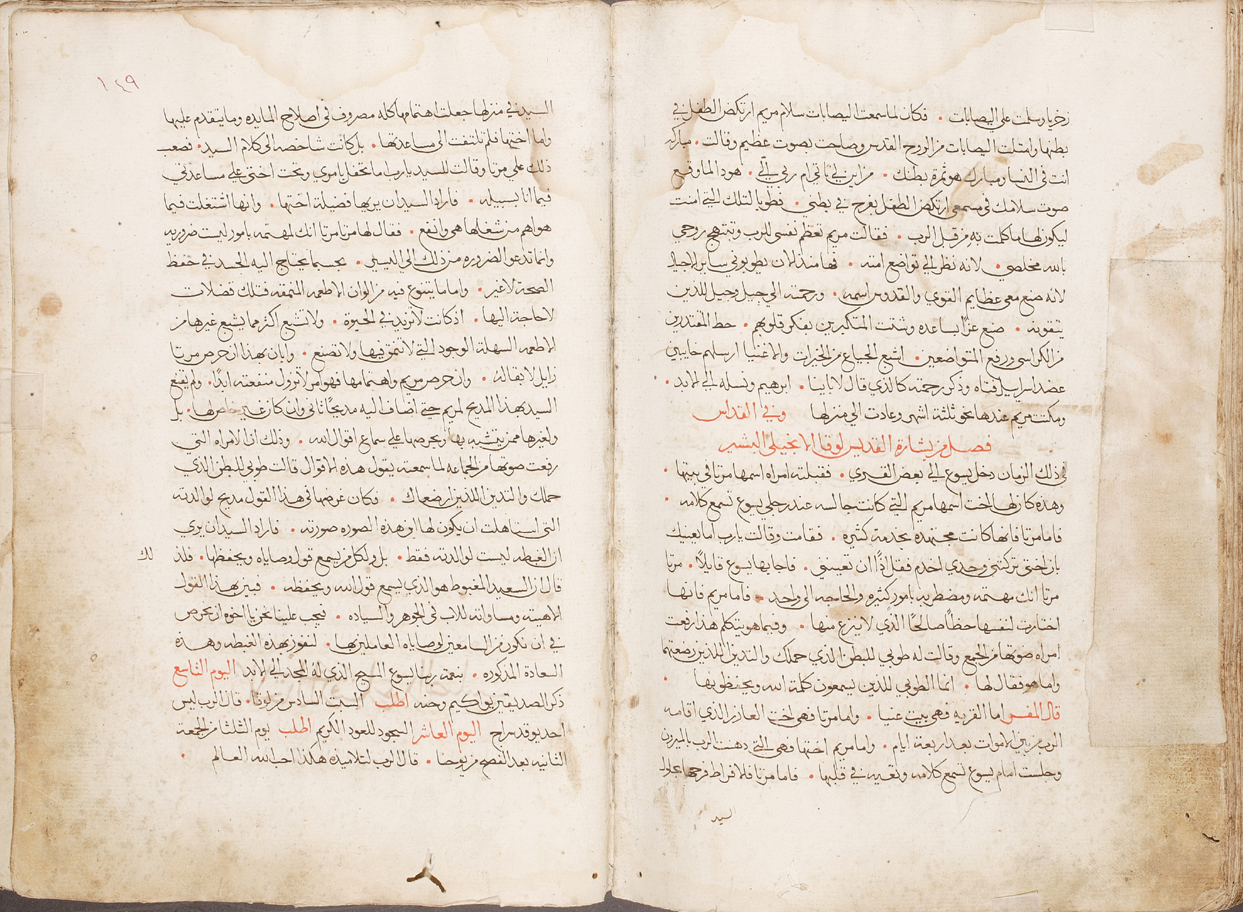 زخريا وسلمت علي اليصابات . فكان لما سمعت اليصابات سلام مريم ارتكض الطفل في
بطنها وامتلت اليصابات من الروح القدس وصاحت بصوت عظيم وقالت . مباركه
انت في النسا ومبارك هو ثمرة بطنك . من اين لي تاتي ام ربي الي . هوذا لما وقع
صوت سلامك في مسمعي ارتكض الطفل بفرح في بطني . فطوبا لتلك التي امنت
ليكون لها ما كلمت به من قبل الرب . فقالت مريم تعظم نفسي للرب وتبتهج روحي
بالله مخلصي . لانه نظر الي تواضع امته . فها منذ الان يطوبوني ساير الاجيال
لانه صنع معي عظايم القوي والقدوس اسمه . ورحمته الي جيل وجيل للذين
يتقونه . صنع عزًا بساعده وشتت المتكبرين بفكر قلوبهم . حط المقتدرين
من الكراسي ورفع المتواضعين . اشبع الجياع من الخيرات والاغنيا ارسلهم خايبين
عضد اسراييل فتاه وذكر رحمته كالذي قال لاباينا . ابرهيم ونسله الي الابد .
ومكثت مريم عندها نحو ثلثة اشهر وعادت الي منزلها وفي القداس
فصل من بشارة القديس لوقا الانجيلي البشير
في ذلك الزمان دخل يسوع الي بعض القري . فقبلته امراه اسمها مرتا في بيتها
وهذه كان لها اخت اسمها مريم التي كانت جالسه عند رجلي يسوع تسمع كلامه .
فاما مرتا فانها كانت مجتهده بخدمه كثيره . فقامت وقالت يارب اما يعنيك
بان اختي تركتني وحدي اخدم فقل لها ان تعينني . فاجابها يسوع قايلاً . مرتا
مرتا انك مهتمه ومضطربه بامور كثيره والحاجه الي واحد . فاما مريم فانها
اختارت لنفسها حظًا صالحًا الذي لا ينزع منها . وفيما هو يتكلم هذا رفعت
امراه صوتها من الجمع وقالت له طوبي للبطن الذي حملك والثديين اللذين رضعتهما
واما هو فقال لها . انما الطوبي للذين يسمعون كلمة الله ويحفظونها .
قال المفسر اما القريه فهي بيت عنيا . واما مرتا فهي اخت العازر الذي اقامه
الرب من بين الاموات بعد اربعة ايام . واما مريم اختها فهي التي دهنت الرب بالميرون
وجلست امام يسوع تسمع كلامه وتعيه في قلبها . فاما مرتا فلافراط فرحها بحلول
السيد
١٤٩
السيد في منزلها جعلت اهتمامها كله مصروف في اصلاح المايده وما يتقدم عليها
واما اختها فلم تلتفت الي مساعدتها . بل كانت شاخصه الي كلام السيد . فصعب
ذلك علي مرتا وقالت للسيد يارب اما تحفل باموري وتحث اختي علي مساعدتي
فيما انا بسبيله . فاراد السيد ان يريها فضيلة اختها . وانها اشتغلت فيما
هو اهم من شغلها هي وانفع . فقال لها مرتا مرتا انك لمهتمه بامور ليست ضروريه
وانما تدعو الضروره من ذلك الي اليسير . بحسب ما يحتاج اليه الجسد في حفظ
الصحة لا غير . واما ما يتنوع فيه من الوان الاطعمه المنمقه فتلك فضلات
لا حاجة اليها . اذ كانت لا تزيد في الحيوة . ولا تشبع اكثر مما يشبع غيرها من
الاطعمه السهلة الوجود التي لا تنمق فيها ولا تصنع . وابان بهذا ان حرص مرتا
زايل لا بقا له . وان حرص مريم واهتمامها فهو امر لا تزول منفعته ابدًا . ولم يقنع
السيد بهذا المديح لمريم حتي اضاف اليه مديحًا ثاني وان كان غير خاص بها . بل
ولغيرها ممن يتشبه بها ويحرصها علي سماع اقوال الله . وذلك ان الامراه التي
رفعت صوتها من الجماعه لما سمعته يقول هذه الاقوال قالت طوبي للبطن الذي
حملك والثديين اللذين ارضعاك . فكان غرضها في هذا القول مديح لوالدته
التي استاهلت ان يكون لها ابن هذه الصوره صورته . فاراد السيد ان يري
ان الغبطه ليست لوالدته فقط . بل ولكل من يسمع قوله ووصاياه ويحفظها . فلذلك
قال ان السعيد المغبوط هو الذي يسمع قول الله ويحفظه . فبين بهذا القول
لاهوته ومساواته للاب في الجوهر والسياده . فيجب علينا نحن يا اخوه ان نحرص
في ان نكون من السامعين لوصاياه العاملين بها . لنفوز بهذه الغبطه وهذه
السعادة المذكوره . بنعمة ربنا يسوع المسيح الذي له المجد الي الابد اليوم التاسع
ذكر الصديقين يواكيم وحنه اطلب السبت السادس من لوقا . قال الرب ليس
احد يوقد سراج اليوم العاشر السجود للعود الكريم اطلب يوم الثلثا من الجمعة
الثانيه بعد الفصح من يوحنا . قال الرب لتلاميذه هكذا احب الله العالم .